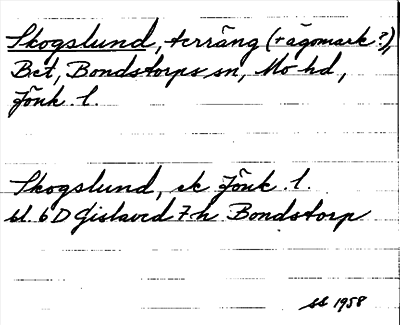 Skogslund, terräng (+ ägomark?),
Bet, Bondstorps sn, Mo hd,
Jönk. l.
Skogslund, ek Jönk. l.
bl. 6D Gislaved 7h Bondstorp
1958